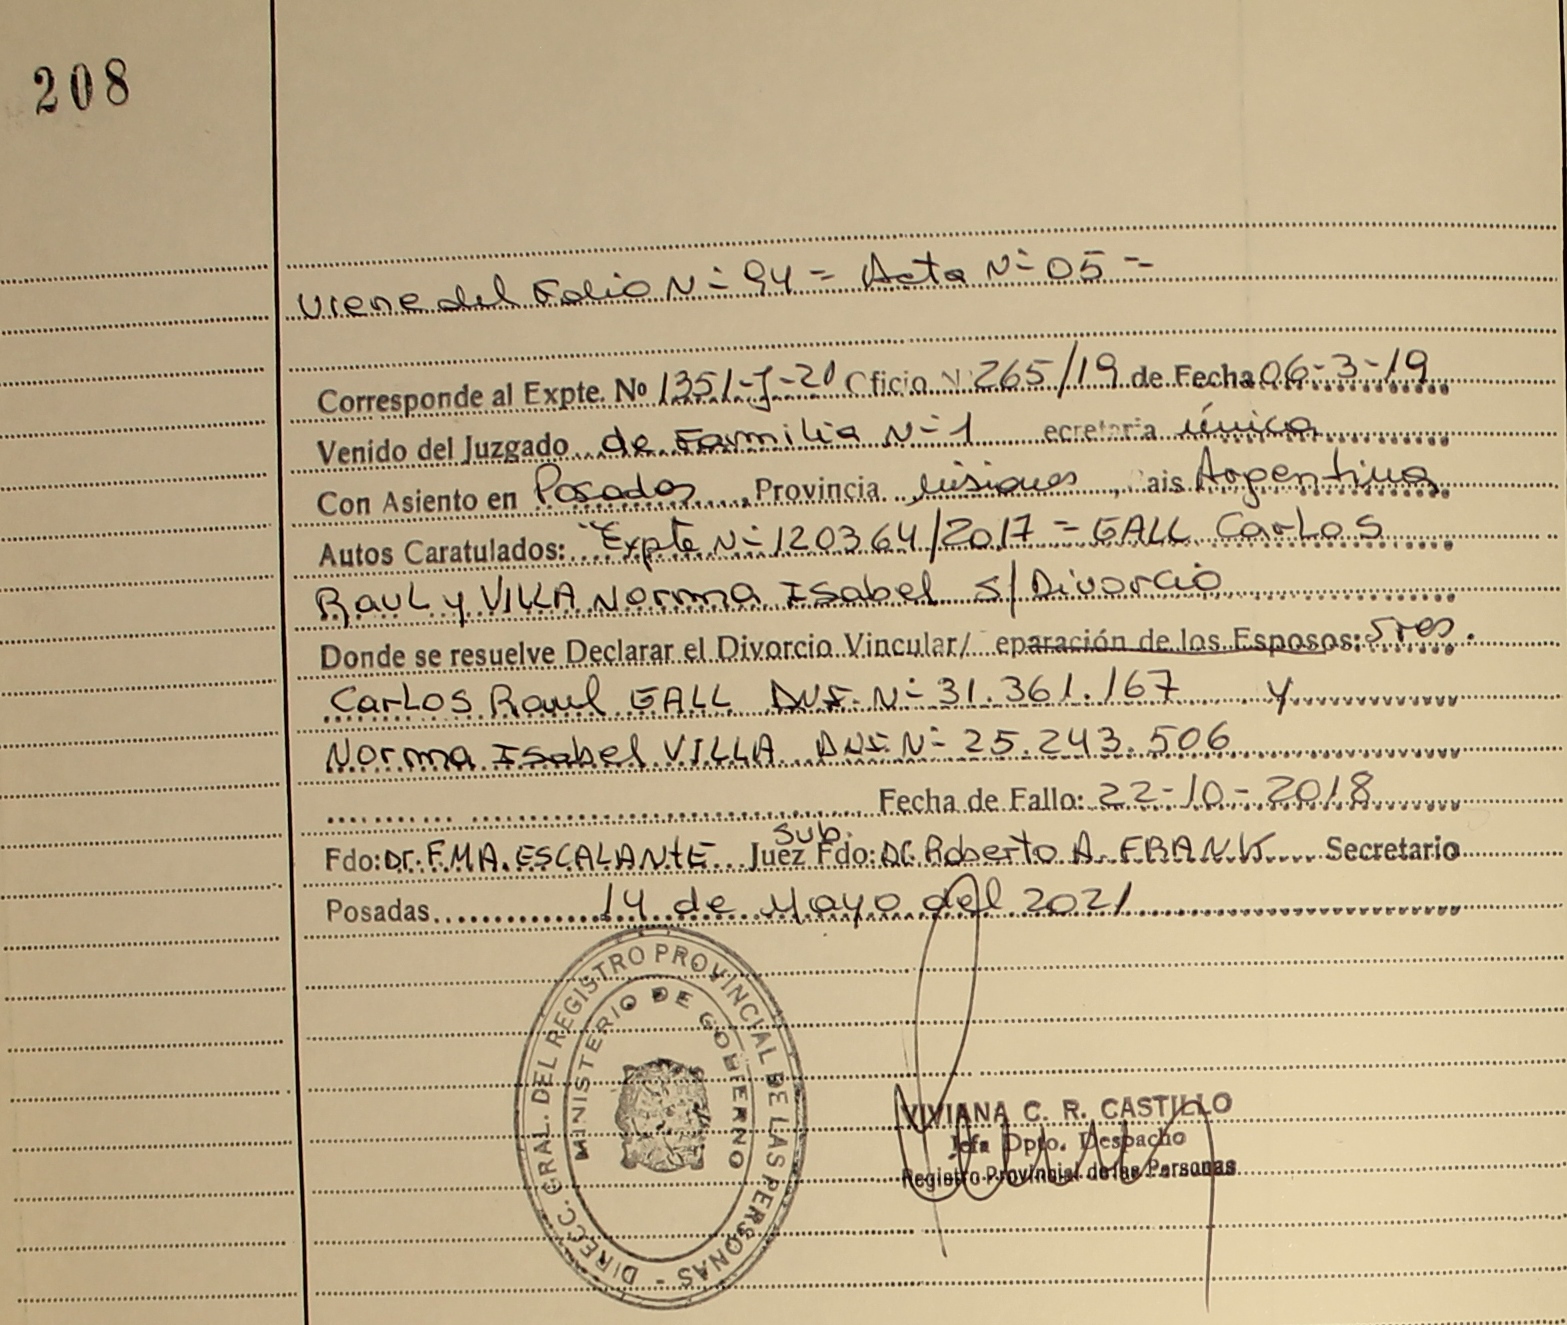 208
Viene del Folio N= 94 = Acta N= 05 =
Corresponde al Expte. Nº 1351-J-20 Oficio N 265/19 de Fecha 06-3-19
Venido del Juzgado de Familia N=1 ecretaria única
Con Asiento en Posadas, Provincia Misiones, Pais Argentina
Autos Caratulados: "Expte N= 120364/2017 = GALL Carlos
Raul y VILLA Norma Isabel s/Divorcio
Donde se resuelve Declarar el Divorcio Vincular/ eparación de los Esposos: Sres.
Carlos Raul GALL DNI. N= 31.361.167 y
Norma Isabel VILLA DNI N= 25.243.506
Fecha de Fallo: 22-10-2018
Sub.
Fdo: Dr. F.M.A. ESCALANTE Juez Fdo: Dr. Roberto A. FRANK Secretario
Posadas 14 de Mayo del 2021
DIRECC. GRAL. DEL REGISTRO PROVINCIAL DE LAS PERSONAS -
MINISTERIO DE GOBIERNO
VIVIANA C. R. CASTILLO
Jefa Dpto. Despacho
Registro Provincial de las Personas